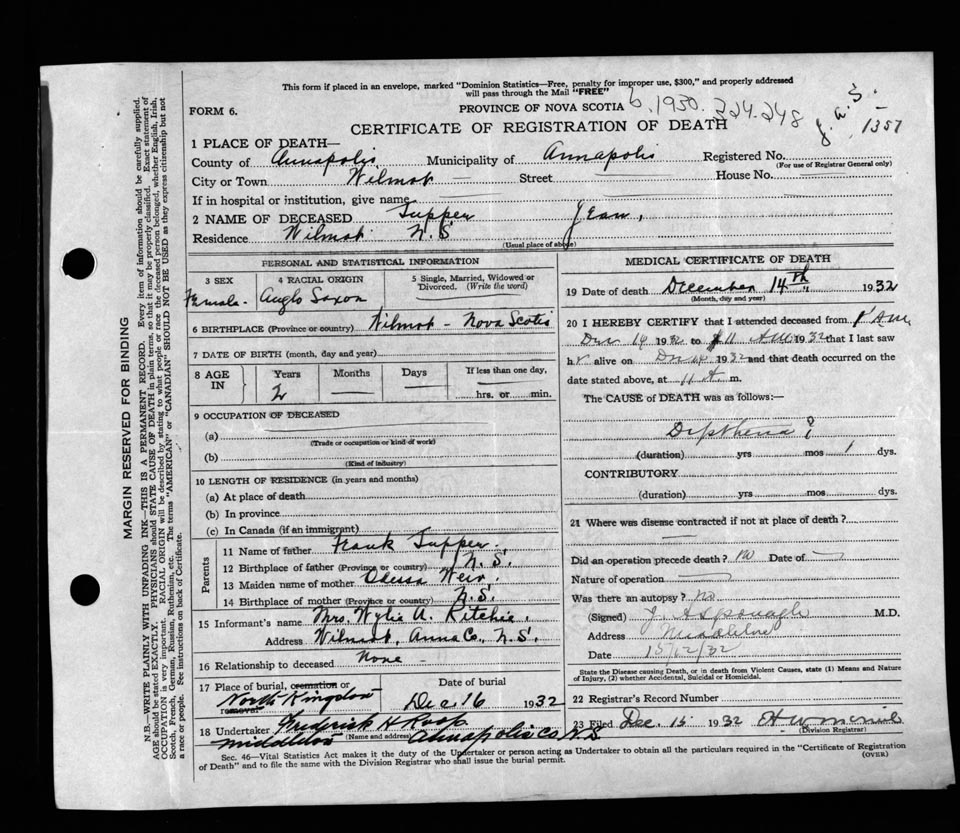 This form if placed in an envelope, marked "Dominion Statistics—Free, penalty for improper use, $300," and properly addressed
will pass through the Mail "FREE"
FORM 6.
PROVINCE OF NOVA SCOTIA 6.1950. 224-248
1357
CERTIFICATE OF REGISTRATION OF DEATH
1 PLACE OF DEATH—
County of Annapolis Municipality of Annapolis Registered No.
(For use of Registrar General only)
City or Town Wilmot Street House No.
If in hospital or institution, give name
2 NAME OF DECEASED Tupper Jean,
Residence Wilmot N.S.
(Usual place of above)
PERSONAL AND STATISTICAL INFORMATION
3 SEX 4 RACIAL ORIGIN 5 Single, Married, Widowed or Divorced. (Write the word)
Female. Anglo Saxon
6 BIRTHPLACE (Province or country) Wilmot - Nova Scotia
7 DATE OF BIRTH (month, day and year)
8 AGE IN Years Months Days If less than one day,
2 hrs. or min.
9 OCCUPATION OF DECEASED
(a)
(Trade or occupation or kind of work)
(b)
(Kind of industry)
10 LENGTH OF RESIDENCE (in years and months)
(a) At place of death
(b) In province
(c) In Canada (if an immigrant)
Parents
11 Name of father Frank Tupper.
12 Birthplace of father (Province or country) N.S.
13 Maiden name of mother Weir.
14 Birthplace of mother (Province or country) N.S.
15 Informant's name Mrs. Wylie A. Ritchie,
Address Wilmot, Anna Co., N.S.
16 Relationship to deceased None -
17 Place of burial, cremation or removal North Kingston
Date of burial
Dec 16 1932
18 Undertaker Frederick H Roop
(Name and address) Middleton Annapolis Co N.S
MEDICAL CERTIFICATE OF DEATH
19 Date of death December 14th 1932
(Month, day and year)
20 I HEREBY CERTIFY that I attended deceased from
Dec 14 1932 to 11 AM 1932 that I last saw
h r alive on Dec 14 1932 and that death occurred on the
date stated above, at 11 A m.
The CAUSE of DEATH was as follows:—
Dipthena ?
(duration) yrs mos 1 dys.
CONTRIBUTORY
(duration) yrs mos dys.
21 Where was disease contracted if not at place of death?
Did an operation precede death? no Date of
Nature of operation
Was there an autopsy? No
(Signed) J. A Sponagle M.D.
Address Middleton
Date 15/12/32
State the Disease causing Death, or in death from Violent Causes, state (1) Means and Nature
of Injury, (2) whether Accidental, Suicidal or Homicidal.
22 Registrar's Record Number
23 Filed Dec. 15 1932
(Division Registrar)
Sec. 46—Vital Statistics Act makes it the duty of the Undertaker or person acting as Undertaker to obtain all the particulars required in the "Certificate of Registration
of Death" and to file the same with the Division Registrar who shall issue the burial permit.
(OVER)
MARGIN RESERVED FOR BINDING
N.B.—WRITE PLAINLY WITH UNFADING INK—THIS IS A PERMANENT RECORD. Every item of information should be carefully supplied.
AGE should be stated EXACTLY. PHYSICIANS should STATE CAUSE OF DEATH in plain terms, so that it may be properly classified. Exact statement of
OCCUPATION is very important. RACIAL ORIGIN will be described by stating to what people or race the deceased person belonged, whether English, Irish,
Scotch, French, German, Russian, Ruthenian, etc. The terms "AMERICAN" or "CANADIAN" SHOULD NOT BE USED as they express citizenship but not
a race or people. See instructions on back of Certificate.